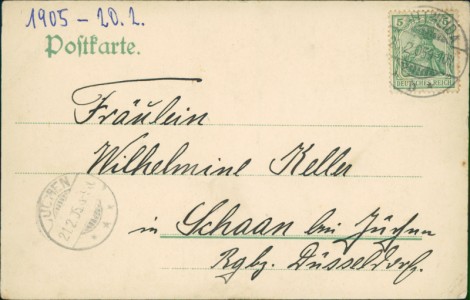 1905 – 20.2.
Postkarte.
5 5
DEUTSCHES REICH
Fräulein
Wilhelmine Keller
in Schaan bei Jüchen
Rgbz. Düsseldorf.
JÜCHEN
21.2.05